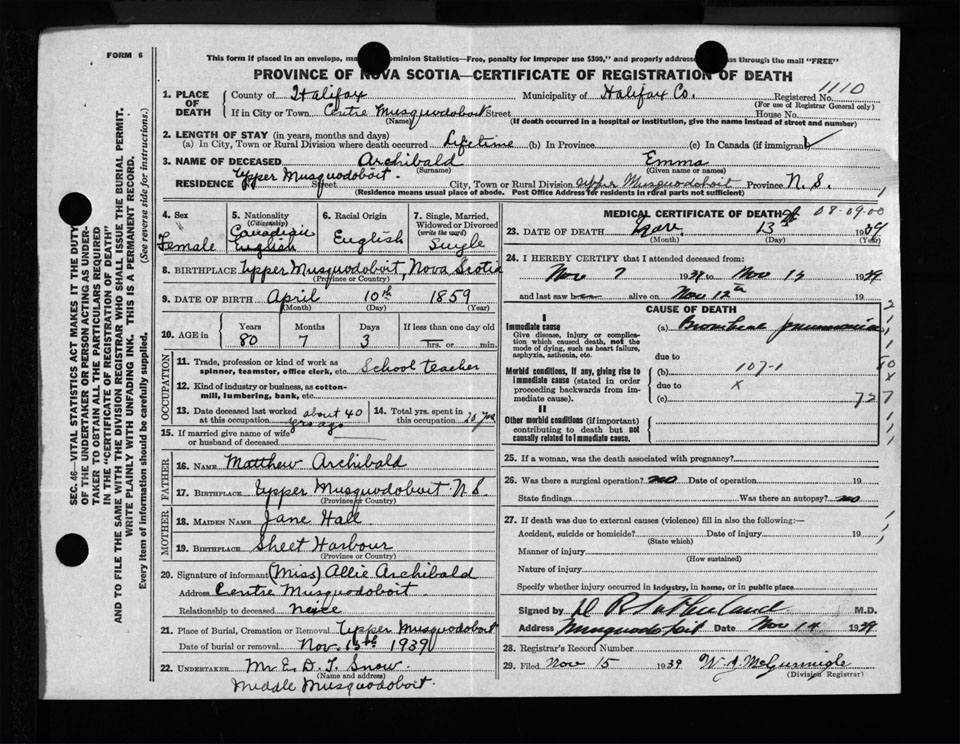 FORM 6
This form if placed in an envelope, ma ominion Statistics—Free, penalty for improper use $300," and properly addresse ss through the mail "FREE"
PROVINCE OF NOVA SCOTIA—CERTIFICATE OF REGISTRATION OF DEATH
1110
1. PLACE OF DEATH County of Halifax Municipality of Halifax Co. Registered No.
(For use of Registrar General only)
If in City or Town Centre Musquodoboit Street House No.
(Name) (If death occurred in a hospital or institution, give the name instead of street and number)
2. LENGTH OF STAY (in years, months and days)
(a) In City, Town or Rural Division where death occurred Lifetime (b) In Province (c) In Canada (if immigrant)
3. NAME OF DECEASED Archibald Emma
(Surname) (Given name or names)
RESIDENCE Upper Musquodoboit Street City, Town or Rural Division Upper Musquodoboit Province N.S.
(Residence means usual place of abode. Post Office Address for residents in rural parts not sufficient)
SEC. 46—VITAL STATISTICS ACT MAKES IT THE DUTY
OF THE UNDERTAKER OR PERSON ACTING AS UNDER-
TAKER TO OBTAIN ALL THE PARTICULARS REQUIRED
IN THE "CERTIFICATE OF REGISTRATION OF DEATH"
AND TO FILE THE SAME WITH THE DIVISION REGISTRAR WHO SHALL ISSUE THE BURIAL PERMIT.
WRITE PLAINLY WITH UNFADING INK. THIS IS A PERMANENT RECORD.
Every item of information should be carefully supplied. (See reverse side for instructions.)
4. Sex
Female
5. Nationality
(Citizenship)
Canadian
English
6. Racial Origin
English
7. Single, Married,
Widowed or Divorced
(write the word)
Single
8. BIRTHPLACE Upper Musquodoboit, Nova Scotia
9. DATE OF BIRTH April 10th 1859
(Month) (Day) (Year)
10. AGE in Years Months Days If less than one day
80 7 3 hrs. or min.
OCCUPATION
11. Trade, profession or kind of work as
spinner, teamster, office clerk, etc. School teacher
12. Kind of industry or business, as cotton-
mill, lumbering, bank, etc.
13. Date deceased last worked
at this occupation about 40 yrs ago
14. Total yrs. spent in
this occupation 20 yrs
15. If married give name of wife
or husband of deceased
FATHER
16. NAME Matthew Archibald
17. BIRTHPLACE Upper Musquodoboit N.S.
(Province or Country)
MOTHER
18. MAIDEN NAME Jane Hall
19. BIRTHPLACE Sheet Harbour
(Province or Country)
20. Signature of informant (Miss) Allie Archibald
Address Centre Musquodoboit
Relationship to deceased Neice
21. Place of Burial, Cremation or Removal Upper Musquodoboit
Date of burial or removal Nov. 15th 1939
22. UNDERTAKER Mr E. D. T. Snow
(Name and address)
Middle Musquodoboit.
MEDICAL CERTIFICATE OF DEATH 08.09.00
23. DATE OF DEATH Nov 13th 19
(Month) (Day) (Year)
24. I HEREBY CERTIFY that I attended deceased from:
Nov 7 1939 to Nov 13 1939
and last saw h alive on Nov 12th 19
CAUSE OF DEATH
I
Immediate cause
Give disease, injury or complica-
tion which caused death, not the
mode of dying, such as heart failure,
asphyxia, asthenia, etc.
(a) Bronchial pneumonia
due to
Morbid conditions, if any, giving rise to
immediate cause (stated in order
proceeding backwards from im-
mediate cause).
(b) 107-1
due to x
(c) 727
II
Other morbid conditions (if important)
contributing to death but not
causally related to immediate cause.
25. If a woman, was the death associated with pregnancy?
26. Was there a surgical operation? no Date of operation 19
State findings Was there an autopsy? no
27. If death was due to external causes (violence) fill in also the following:—
Accident, suicide or homicide? Date of injury 19
(State which)
Manner of injury
(How sustained)
Nature of injury
Specify whether injury occurred in industry, in home, or in public place
Signed by D R Sutherland M.D.
Address Musquodoboit Date Nov 14 1939
28. Registrar's Record Number
29. Filed Nov 15 1939
(Division Registrar)